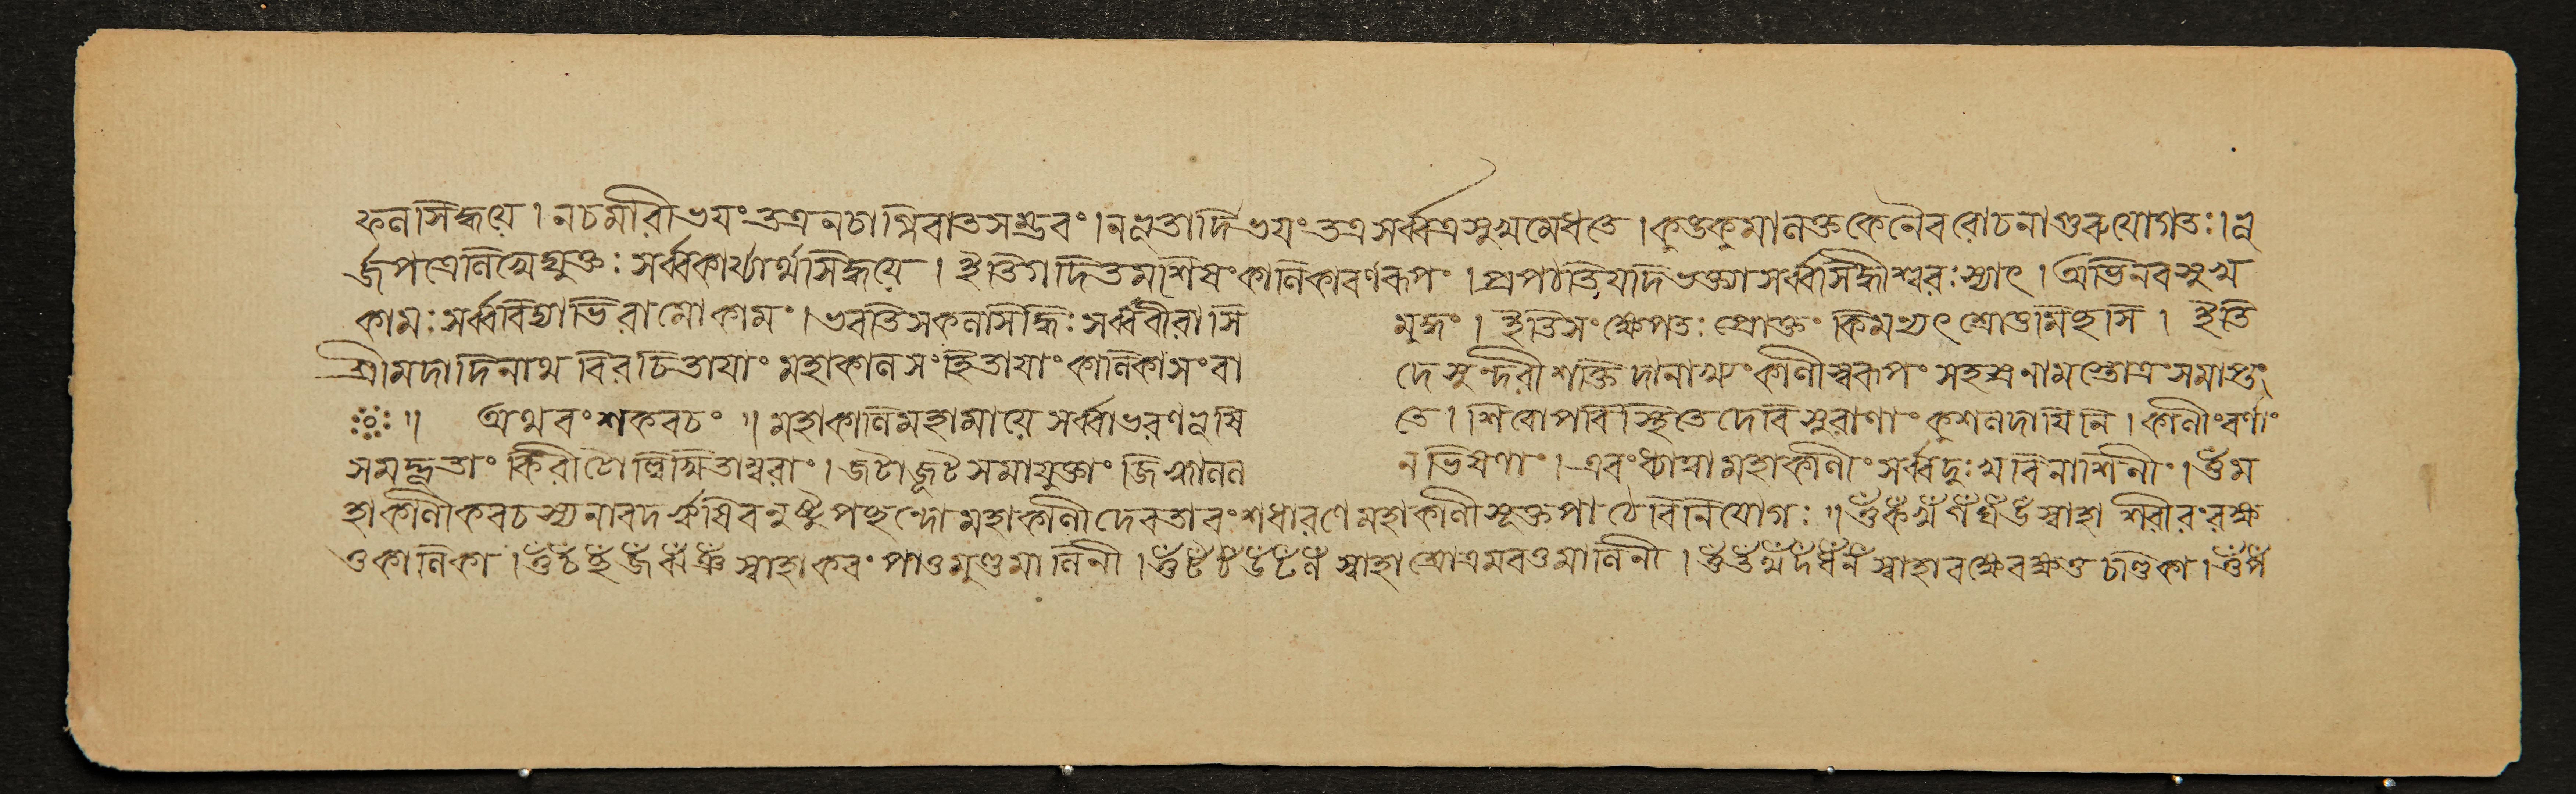 ফলসিদ্ধয়ে । নচমারীভয়ং তত্র নচাগ্নিবাতসম্ভবং । নভূতাদিভয়ং তত্র সর্ব্বত্র সুখমেধতে । কুঙ্কুমালক্তকেনৈব রোচনাগুরুযোগতঃ । ভূ
র্জপত্রে লিখেদ্যুক্তঃ সর্ব্বকার্য্যার্থসিদ্ধয়ে । ইতি গদিতমশেষং কালিকাবর্ণরূপং । প্রপঠতি যদি ভক্ত্যা সর্ব্বসিদ্ধীশ্বরঃ স্যাৎ । অভিনবসুখ
কামঃ সর্ব্ববিদ্যাভিরামো কামং । ভবতি সকলসিদ্ধিঃ সর্ব্ববীরাসি মৃদ্ধং । ইতি সংক্ষেপতঃ প্রোক্তং কিমন্যৎ শ্রোতুমিহসি । ইতি
শ্রীমদাদিনাথবিরচিতায়াং মহাকালসংহিতায়াং কালিকাসংবা দে সুন্দরীশক্তিদানাখ্যং কালীস্বরূপং সহস্রনামস্তোত্রং সমাপ্তং
॥ অথ বংশকবচং ॥ মহাকালি মহামায়ে সর্ব্বাভরণভূষি তে । শিবোপরিস্থিতে দেবি সুরাণাং কুশলদায়িনি । কালীং বর্ণাং
সমদ্ভূতাং কিরীটো জটাজূটসমাযুক্তাং জিহ্বালল নভিষণাং । এবং ধ্যাত্বা মহাকালীং সর্ব্বদুঃখবিনাশিনীং । ওঁ ম
হাকালীকবচস্য নারদঋষিরনুষ্টুপছন্দো মহাকালীদেবতা বংশধারণে মহাকালীসূক্তপাঠে বিনিয়োগঃ ॥ ওঁ কঁ খঁ গঁ ঘঁ ঙঁ স্বাহা শরীরং রক্ষ
তু কালিকা । ওঁ চঁ ছঁ জঁ ঝঁ ঞঁ স্বাহা করং পাতু মুণ্ডমালিনী । ওঁ টঁ ঠঁ ডঁ ঢঁ ণঁ স্বাহা শ্রোত্রমবতু মালিনী । ওঁ তঁ থঁ দঁ ধঁ নঁ স্বাহা বক্ষে রক্ষতু চণ্ডিকা । ওঁ পঁ